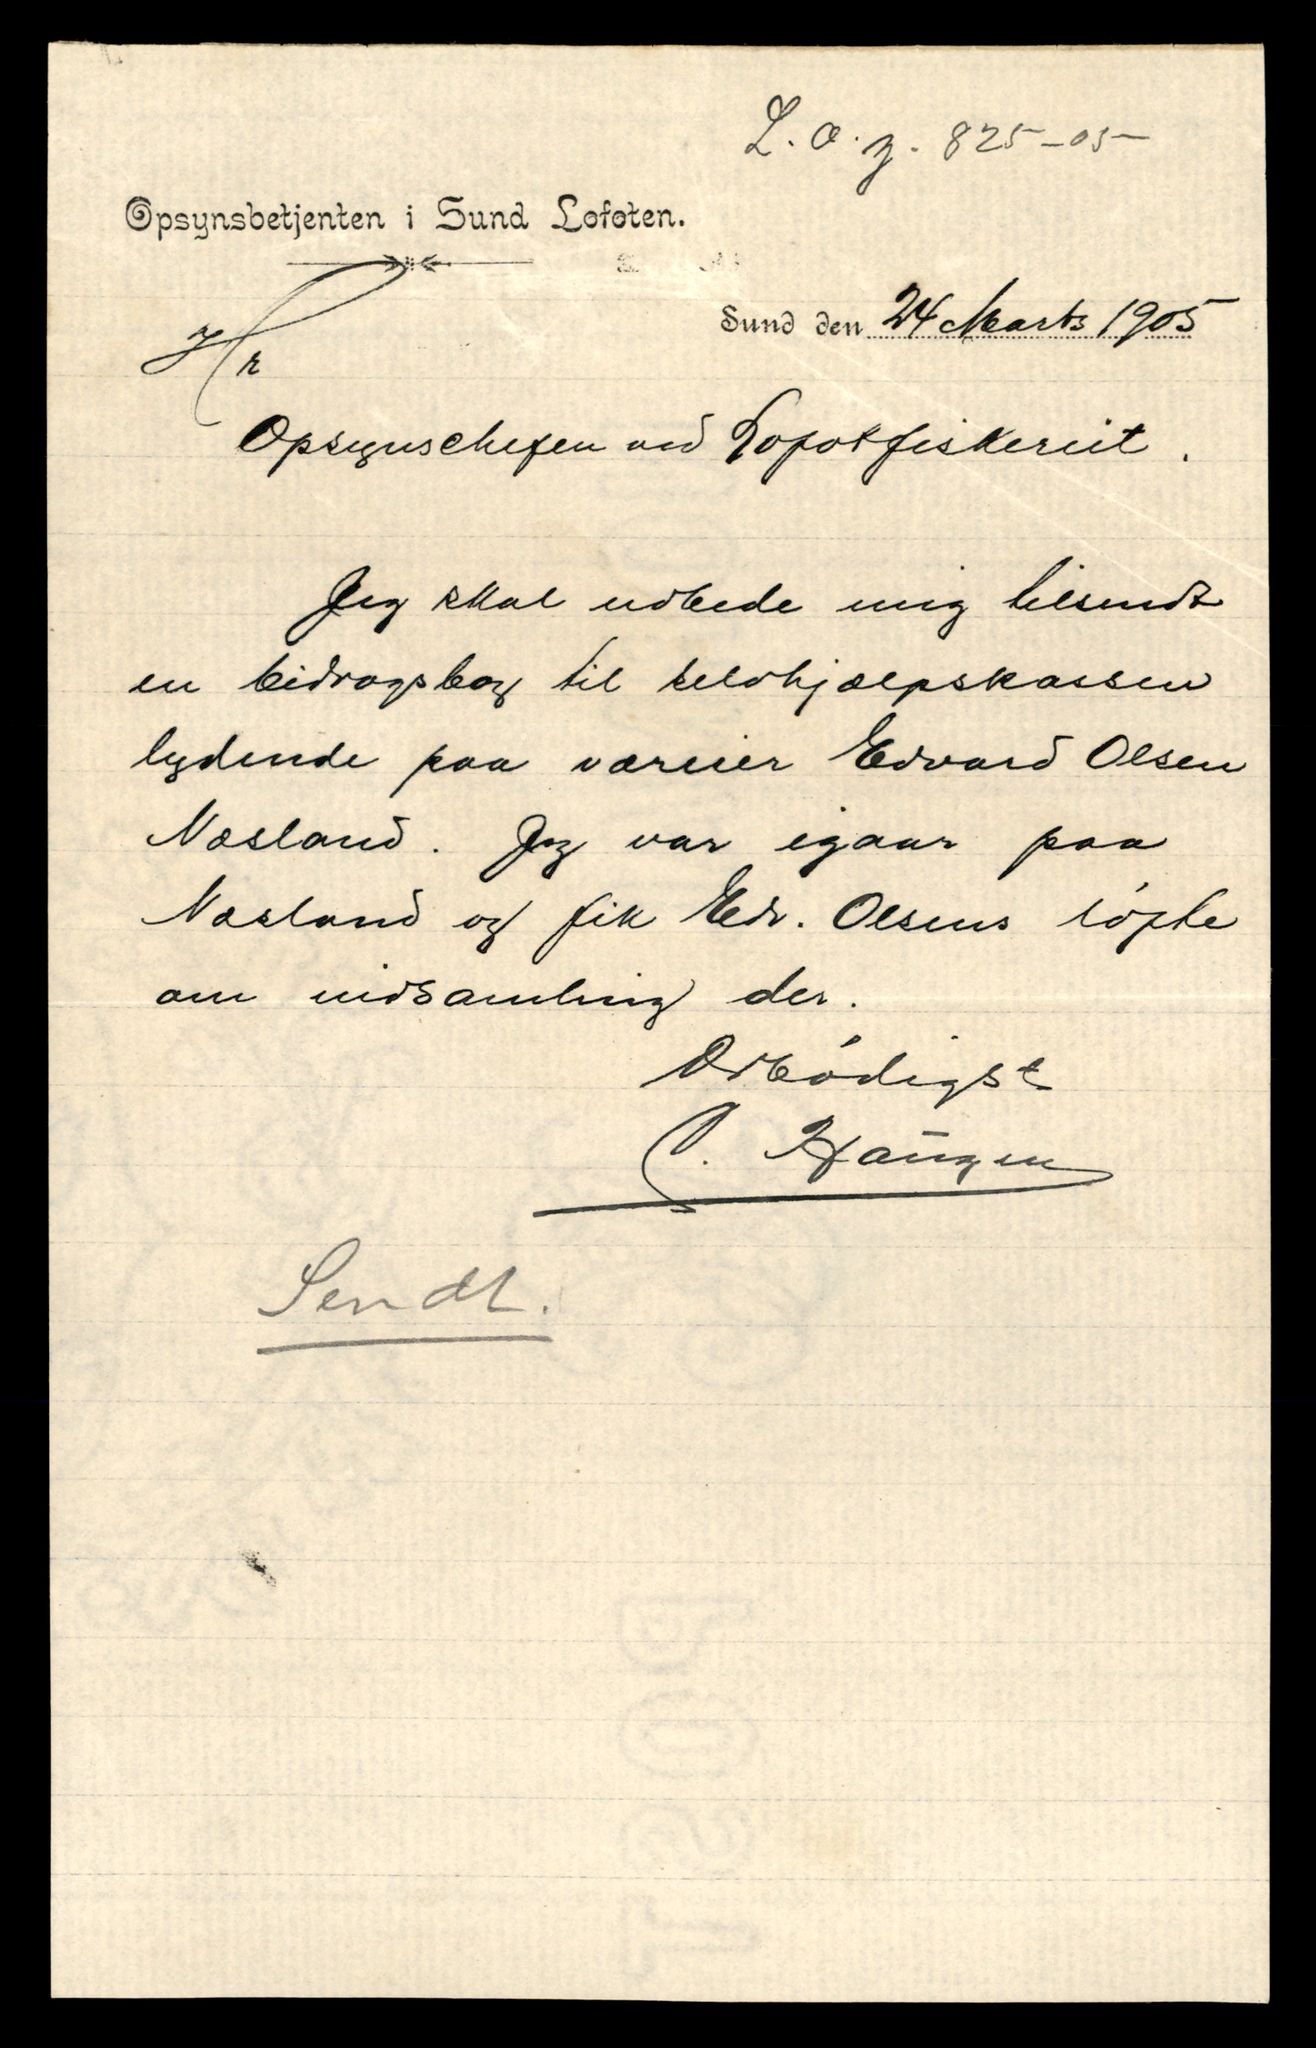 L. O. J. 825-05
Opsynsbetjenten i Sund Lofoten.
Sund den 24 Marts 1905
Hr
Opsynschefen ved Lofotfiskeriet.
Jeg skal udbede mig tilsendt
en bidragsbog til selvhjælpskassen
lydende paa væreier Edvard Olsen
Næsland. Jeg var igaar paa
Næsland og fik Edv. Olsens løfte
om indsamling der.
Ærbødigst
C. Haugen
Sendt.